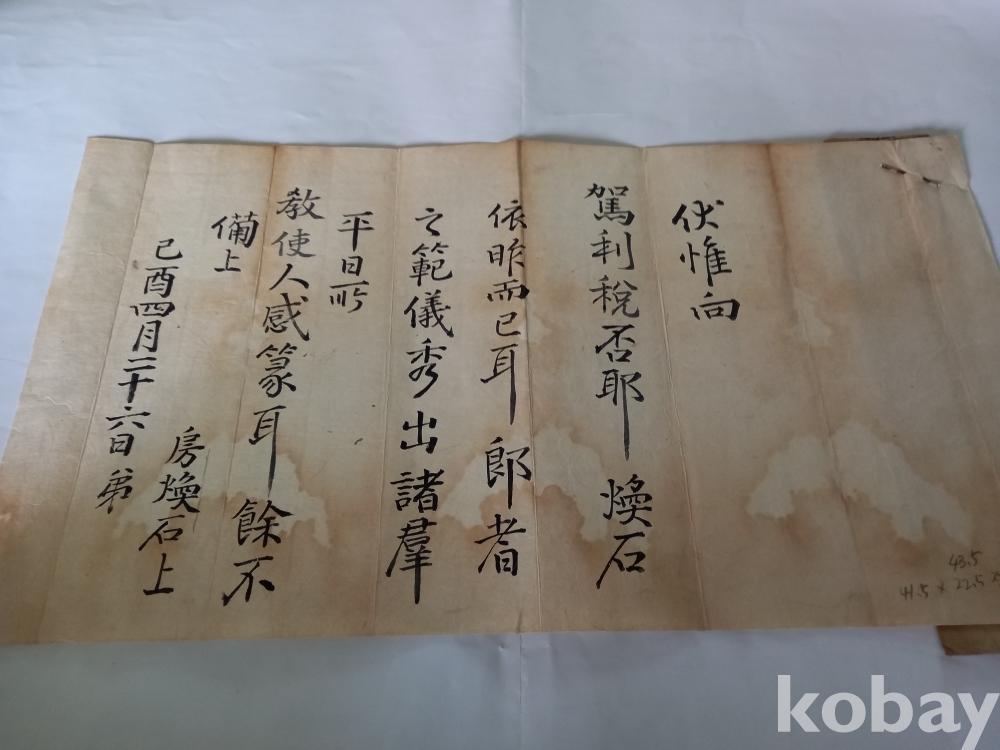 伏惟向
駕利稅否耶 煥石
依昨而已耳 郎者
之範儀秀出諸羣
平日所
敎使人感篆耳 餘不
備上
己酉四月二十六日 弟
房煥石上
43.5
41.5 x 22.5
kobay